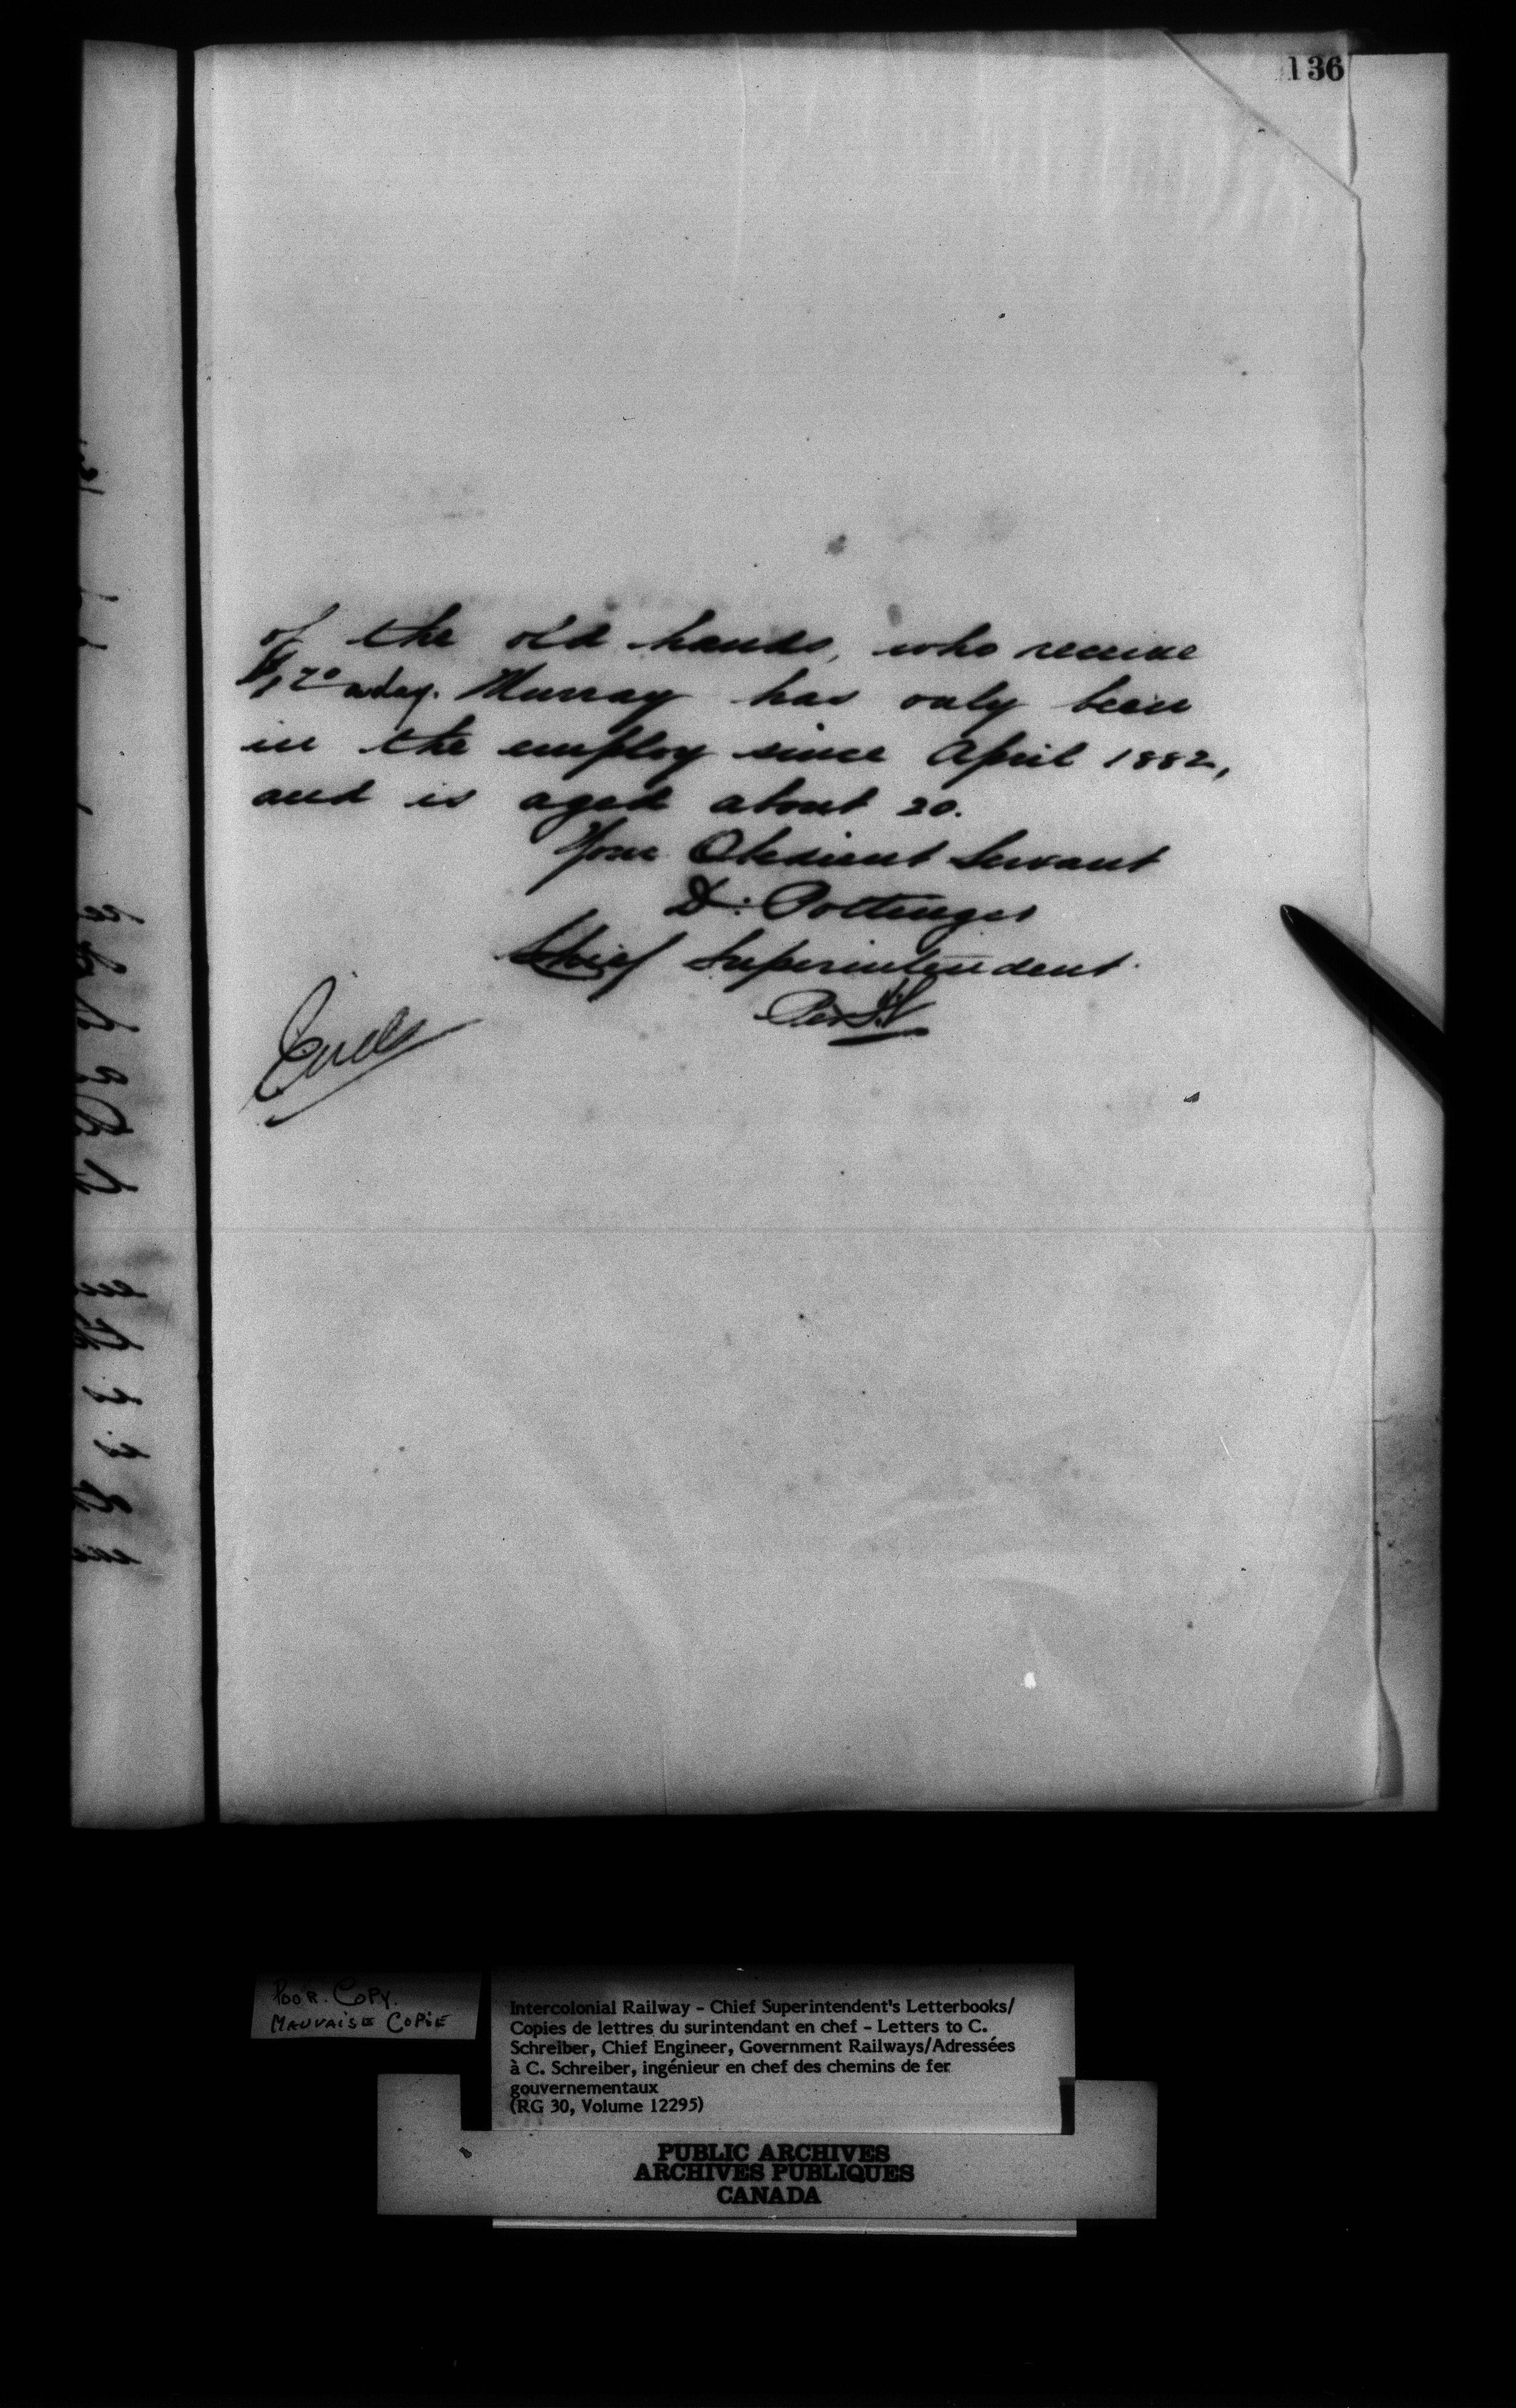 136
of the old hands, who receive
$1.20 a day. Murray has only been
in the employ since April 1882,
and is aged about 20.
Your Obedient Servant
D. Pottinger
Chief Superintendent.
Per
Encls
POOR. COPY.
MAUVAISE COPIE
Intercolonial Railway - Chief Superintendent's Letterbooks/
Copies de lettres du surintendant en chef - Letters to C.
Schreiber, Chief Engineer, Government Railways/Adressées
à C. Schreiber, ingénieur en chef des chemins de fer
gouvernementaux
(RG 30, Volume 12295)
PUBLIC ARCHIVES
ARCHIVES PUBLIQUES
CANADA